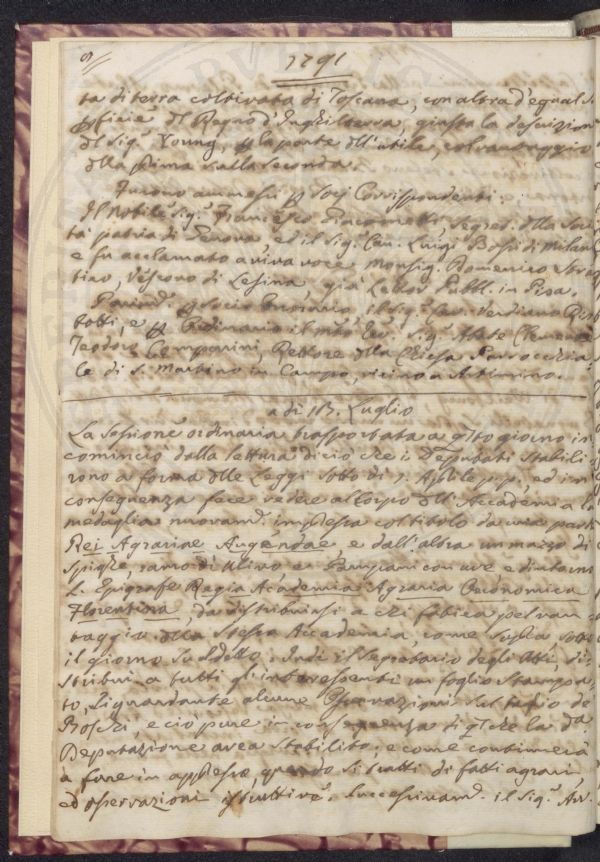 1791
ta di terra coltivata di Toscana, con altra d'egual Su
pficie del Regno d'Inghilterra, giusta la descrizion
del Sig.r Young, p la parte dell'utile, col vantaggio
della prima sulla seconda.
Furono ammessi p Socj Corrispondenti.
Il Nobile Sig.r Francesco Giacometti Segret. della Soci
tà patria di Verona, ed il Sig.r Cav. Luigi Bossi di Milan
e fu acclamato a viva voce Monsig. Domenico
tico, Vescovo di Lesina, già Lettor Pubbl. in Pisa.
Parimd. p Socio Onorario il Sig.r Cav. Verdiano Rim
botti, e p Ordinario il Sig.r Abate Clemente
Teodoro Comparini, Rettore della Chiesa Parrocchia
le di S. Martino in Campo, vicino a Artimino.
a dì 13. Luglio
La Sessione ordinaria trasportata a qsto giorno in
comincio dalla lettura di ciò che i Deputati stabili
rono a forma delle Leggi sotto dì 7. Aprile p.p., ed in
conseguenza fece vedere al Corpo dell'Accademia la
medaglia nuovamd. impressa col titolo da una parte
Rei Agrariae Augendae, e dall'altra un mazzo di
Spighe, ramo di Ulivo e Pampani con uve e d'intorno
L'Epigrafe Regia Academia Agraria Oeconomica
Florentina, da distribuirsi a chi fatica pel van
taggio della Stessa Accademia, come Sopra sotto
il giorno Suddetto. Indi il Segretario degli Atti, di
stribuì a tutti gl'intervenienti un foglio Stampa
to, riguardante alcune Osservazioni sul taglio de
Boschi, e ciò pure in conseguenza di qto che la da
Deputazione avea Stabilito, e come continuerà
a fare in appresso quando si tratti di fatti agrarj
ed osservazioni istruttive. Successivamd. il Sig.r Avv.